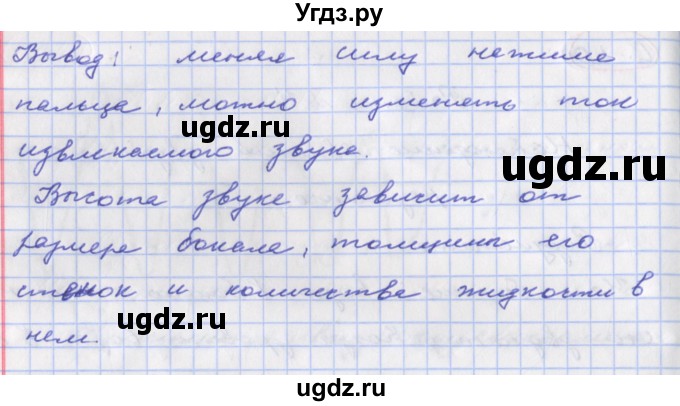 Угдз.ру
Вывод: меняя силу нажима
пальца, можно изменять тон
ugdz.ru
извлекаемого звука.
ugdz.ru
Высота звука зависит от
размера бокала, толщины его
ugdz.ru
стенок и количества жидкости в
ugdz.ru
нем.
ugdz.ru